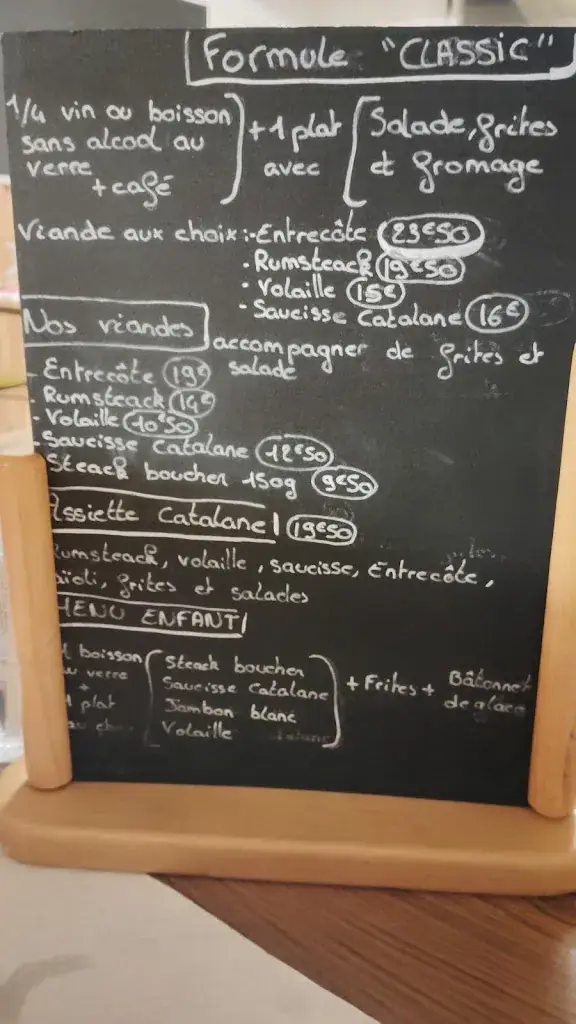 Formule "CLASSIC"
1/4 vin ou boisson
sans alcool au
verre
+ café
+ 1 plat
avec
Salade, frites
et fromage
Viande aux choix :- Entrecôte 23€50
- Rumsteack 19€50
- Volaille 15€
- Saucisse Catalane 16€
Nos viandes accompagner de frites et
salade
- Entrecôte 19€
- Rumsteack 14€
- Volaille 10€50
- Saucisse Catalane 12€50
Steack boucher 150g 9€50
Assiette Catalane 19€50
Rumsteack, volaille, saucisse, Entrecôte,
aïoli, frites et salades
MENU ENFANT
1 boisson
au verre
+
1 plat
au choix
Steack boucher
Saucisse Catalane
Jambon blanc
Volaille
+ Frites +
Bâtonnet
de glace